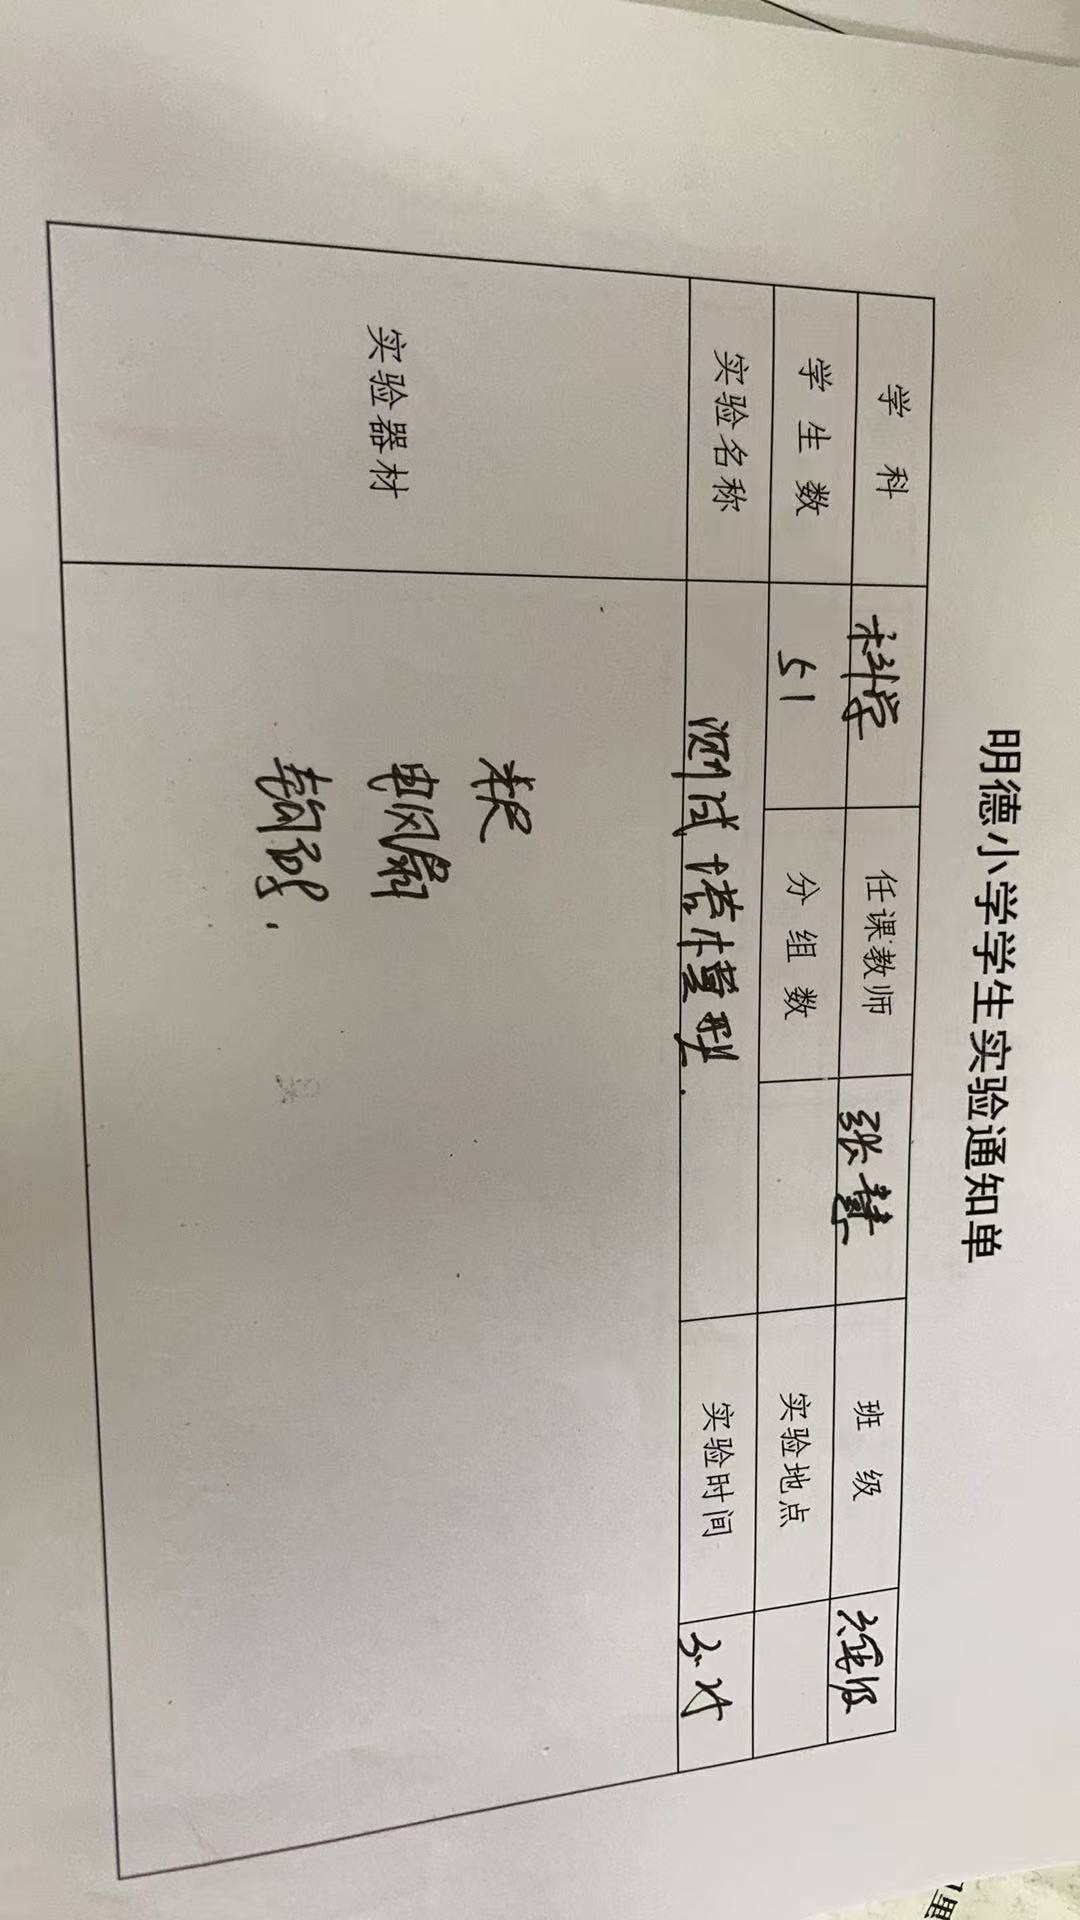 明德小学学生实验通知单
学 科 科学 任课教师 张慧 班 级 六年级
学 生 数 51 分 组 数 实验地点
实验名称 测试塔台模型. 实验时间
实验器材
米尺
电风扇